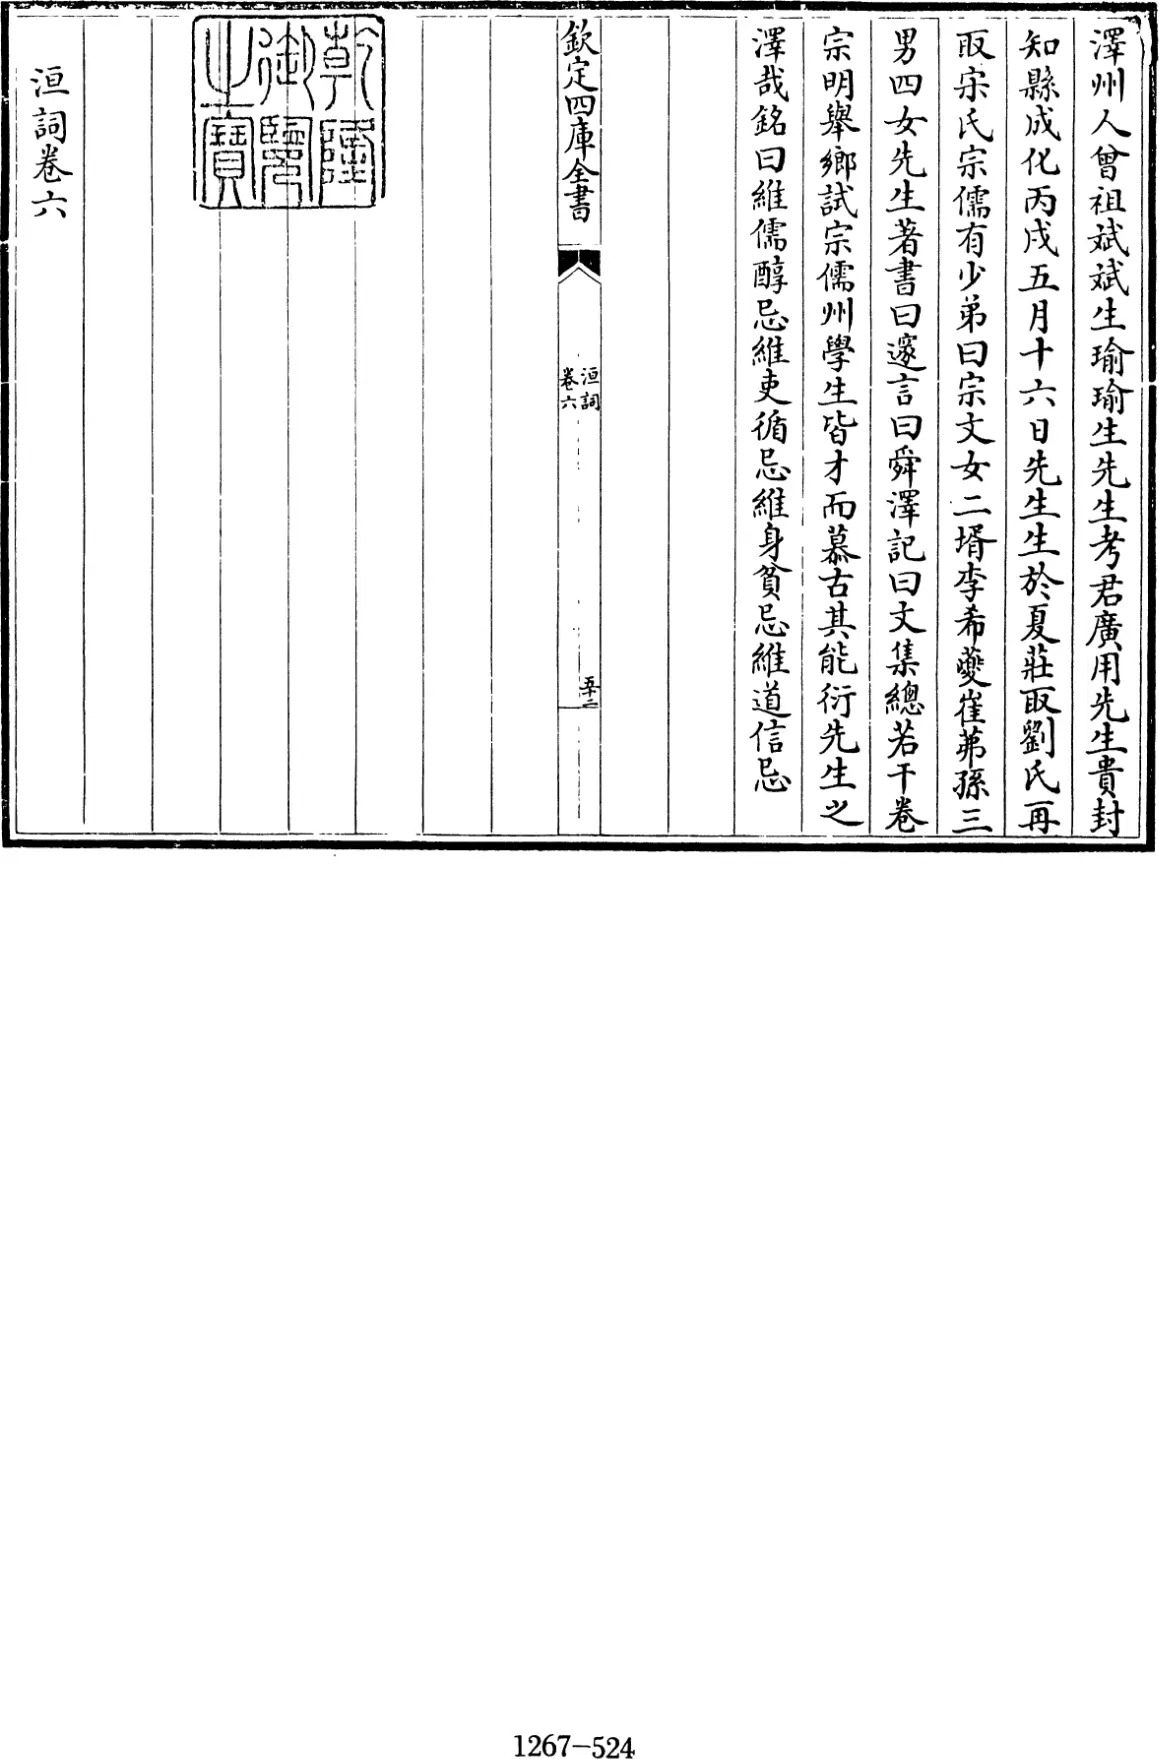 澤州人曾祖斌斌生瑜瑜生先生考君廣用先生貴封
知縣成化丙戌五月十六日先生生於夏莊取劉氏再
取宋氏宗儒有少弟曰宗文女二壻李希夔崔茀孫三
男四女先生著書曰邃言曰舜澤記曰文集總若干卷
宗明舉鄉試宗儒州學生皆才而慕古其能衍先生之
澤哉銘曰維儒醇忌維吏循忌維身貧忌維道信忌
欽定四庫全書
洹詞
卷六
五十二
乾隆
御覽
之寶
洹詞卷六
1267-524